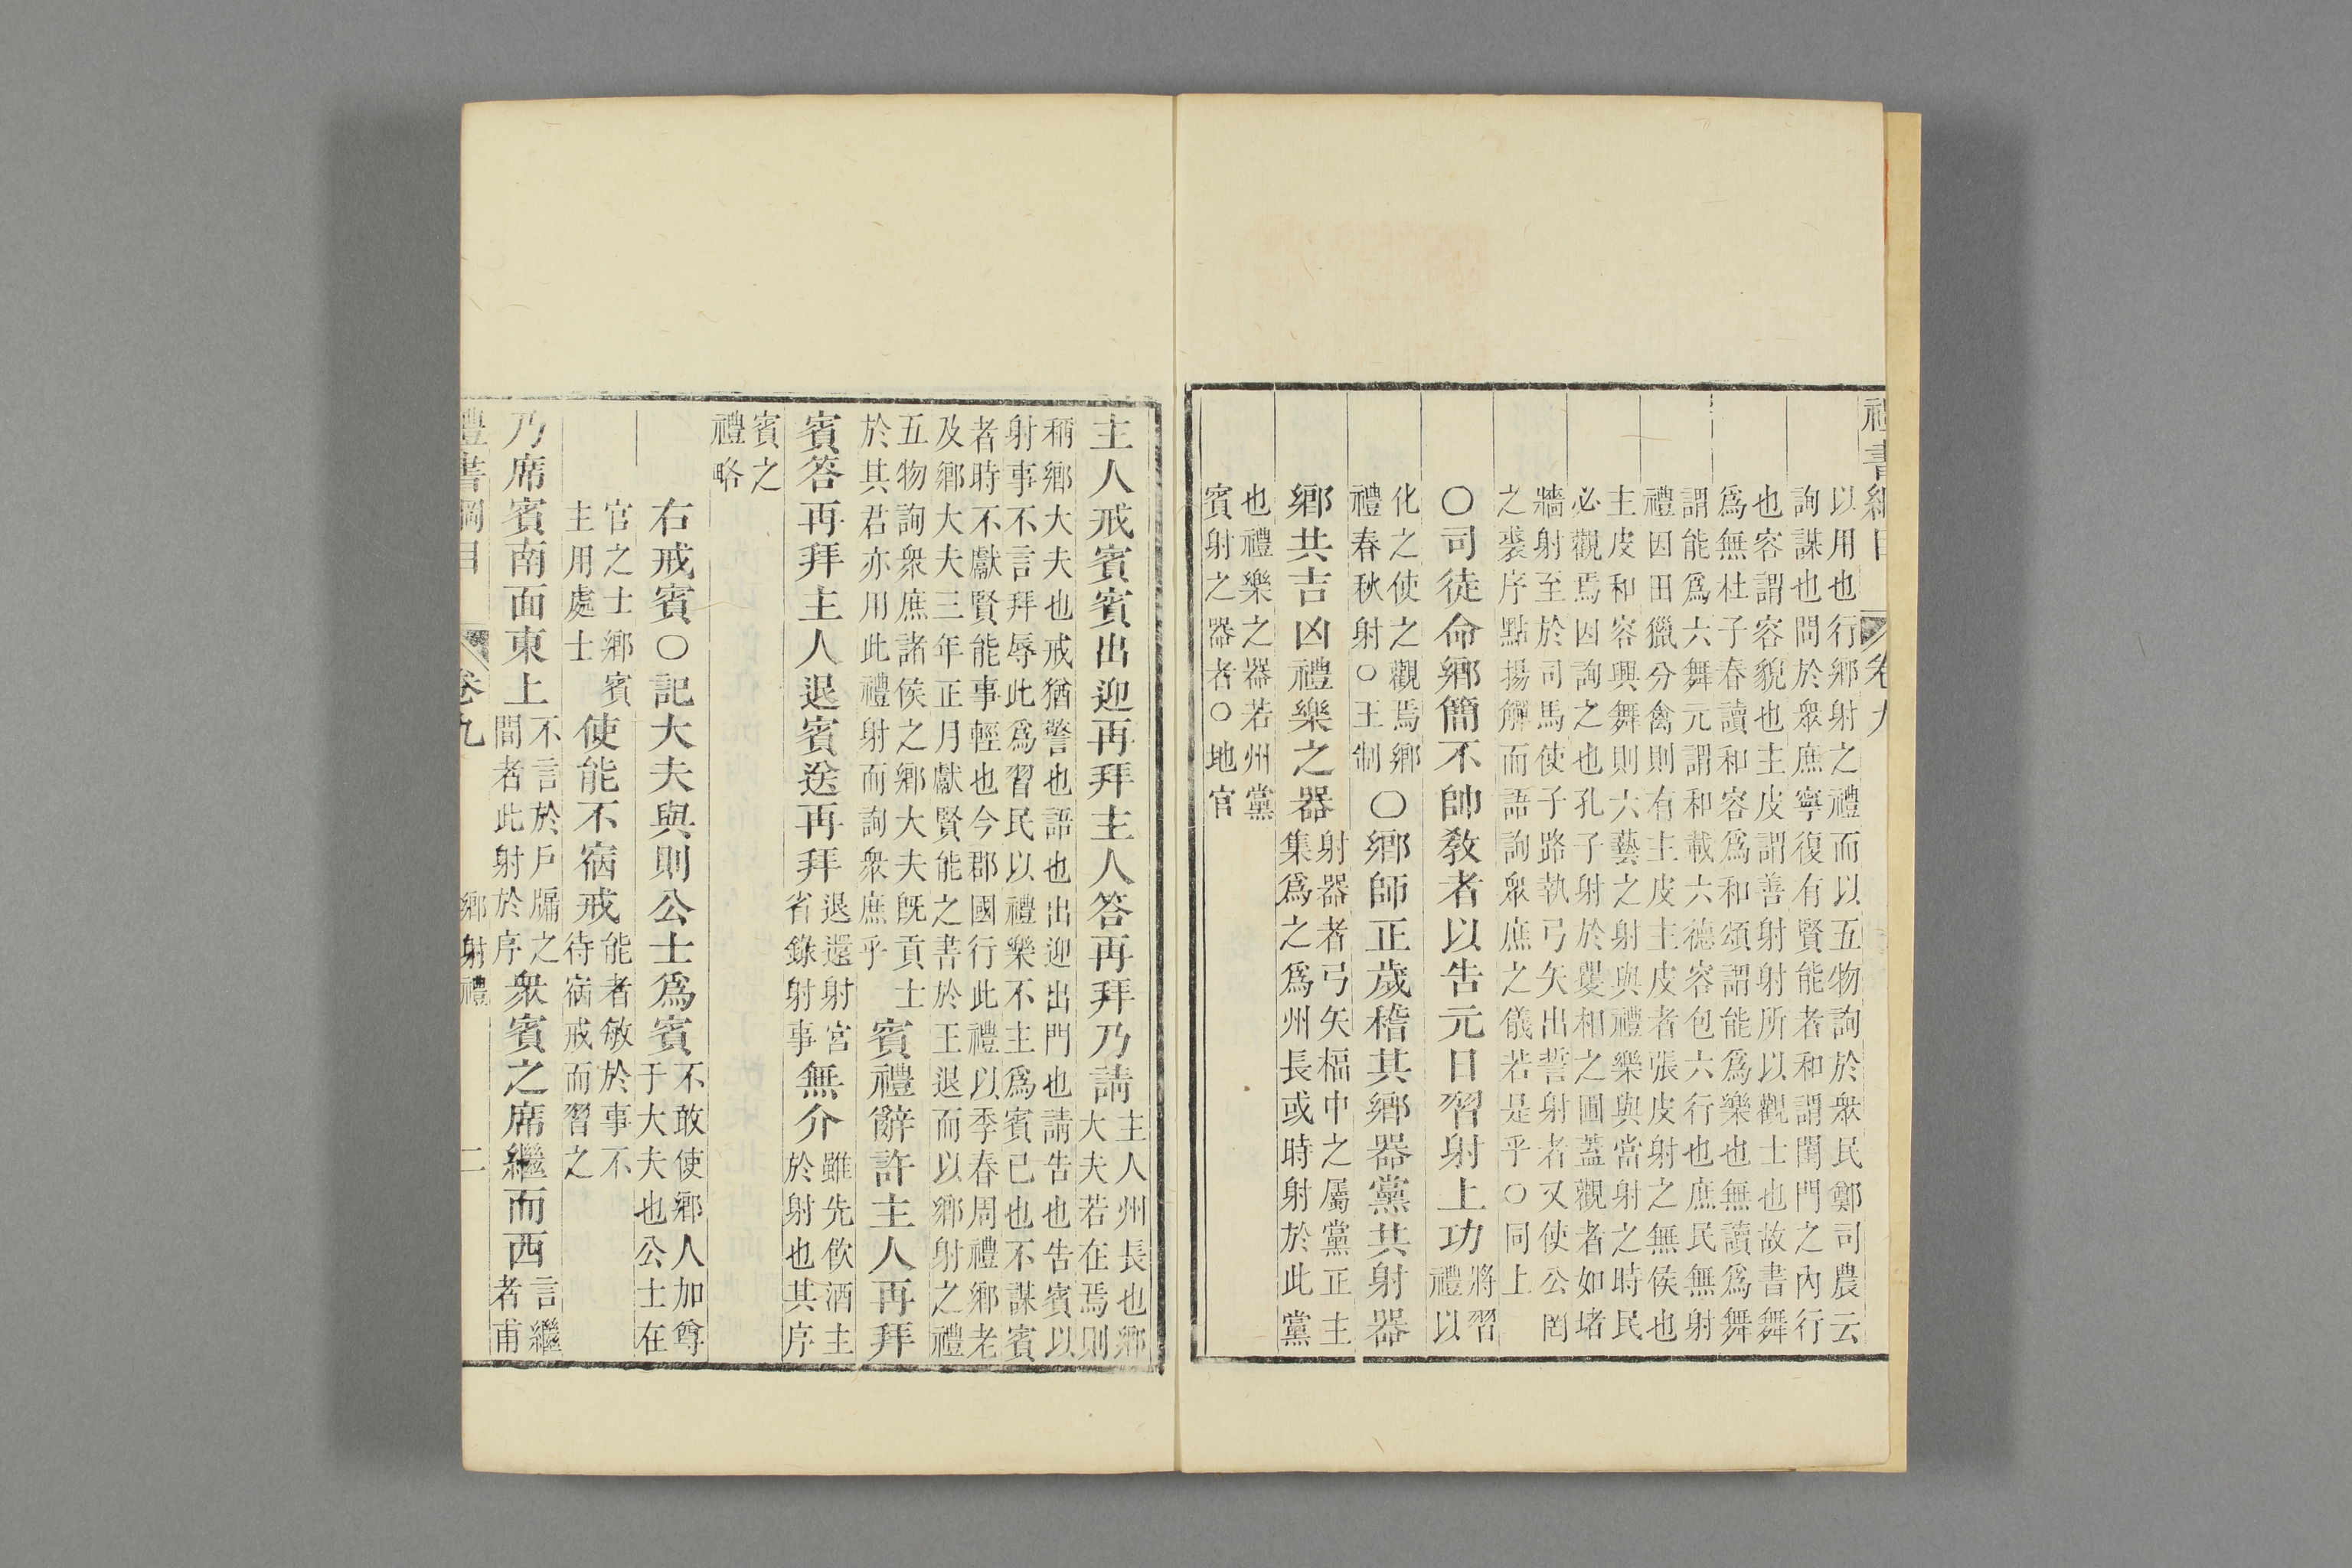 禮書綱目 卷九
以用也行鄉射之禮而以五物詢於衆民鄭司農云
詢謀也問於衆庶寧復有賢能者和謂閨門之內行
也容謂容貌也主皮謂善射射所以觀士也故書舞
爲無杜子春讀和容爲和頌謂能爲樂也無讀爲舞
謂能爲六舞元謂和載六德容包六行也庶民無射
禮因田獵分禽則有主皮主皮者張皮射之無侯也
主皮和容興舞則六藝之射與禮樂與當射之時民
必觀焉因詢之也孔子射於矍相之圃蓋觀者如堵
牆射至於司馬使子路執弓矢出誓射者又使公罔
之裘序點揚觶而語詢衆庶之儀若是乎○同上
○司徒命鄉簡不帥教者以告元日習射上功將習禮以
化之使之觀焉鄉禮春秋射○王制○鄉師正歲稽其鄉器黨共射器
鄉共吉凶禮樂之器射器者弓矢楅中之屬黨正主集爲之爲州長或時射於此黨
也禮樂之器若州黨
賓射之器者○地官
主人戒賓賓出迎再拜主人答再拜乃請主人州長也鄉大夫若在焉則
稱鄉大夫也戒猶警也語也出迎出門也請告也告賓以
射事不言拜辱此爲習民以禮樂不主爲賓已也不謀賓
者時不獻賢能事輕也今郡國行此禮以季春周禮鄉老
及鄉大夫三年正月獻賢能之書於王退而以鄉射之禮
五物詢衆庶諸侯之鄉大夫旣貢士於其君亦用此禮射而詢衆庶乎賓禮辭許主人再拜
賓答再拜主人退賓送再拜退還射宮省錄射事無介雖先飲酒主於射也其序
賓之
禮略
右戒賓○記大夫與則公士爲賓不敢使鄉人加尊于大夫也公士在
官之士鄉賓主用處士使能不宿戒能者敏於事不待宿戒而習之
乃席賓南面東上不言於戶牖之間者此射於序衆賓之席繼而西言繼者甫
禮書綱目 卷九 鄉射禮 二